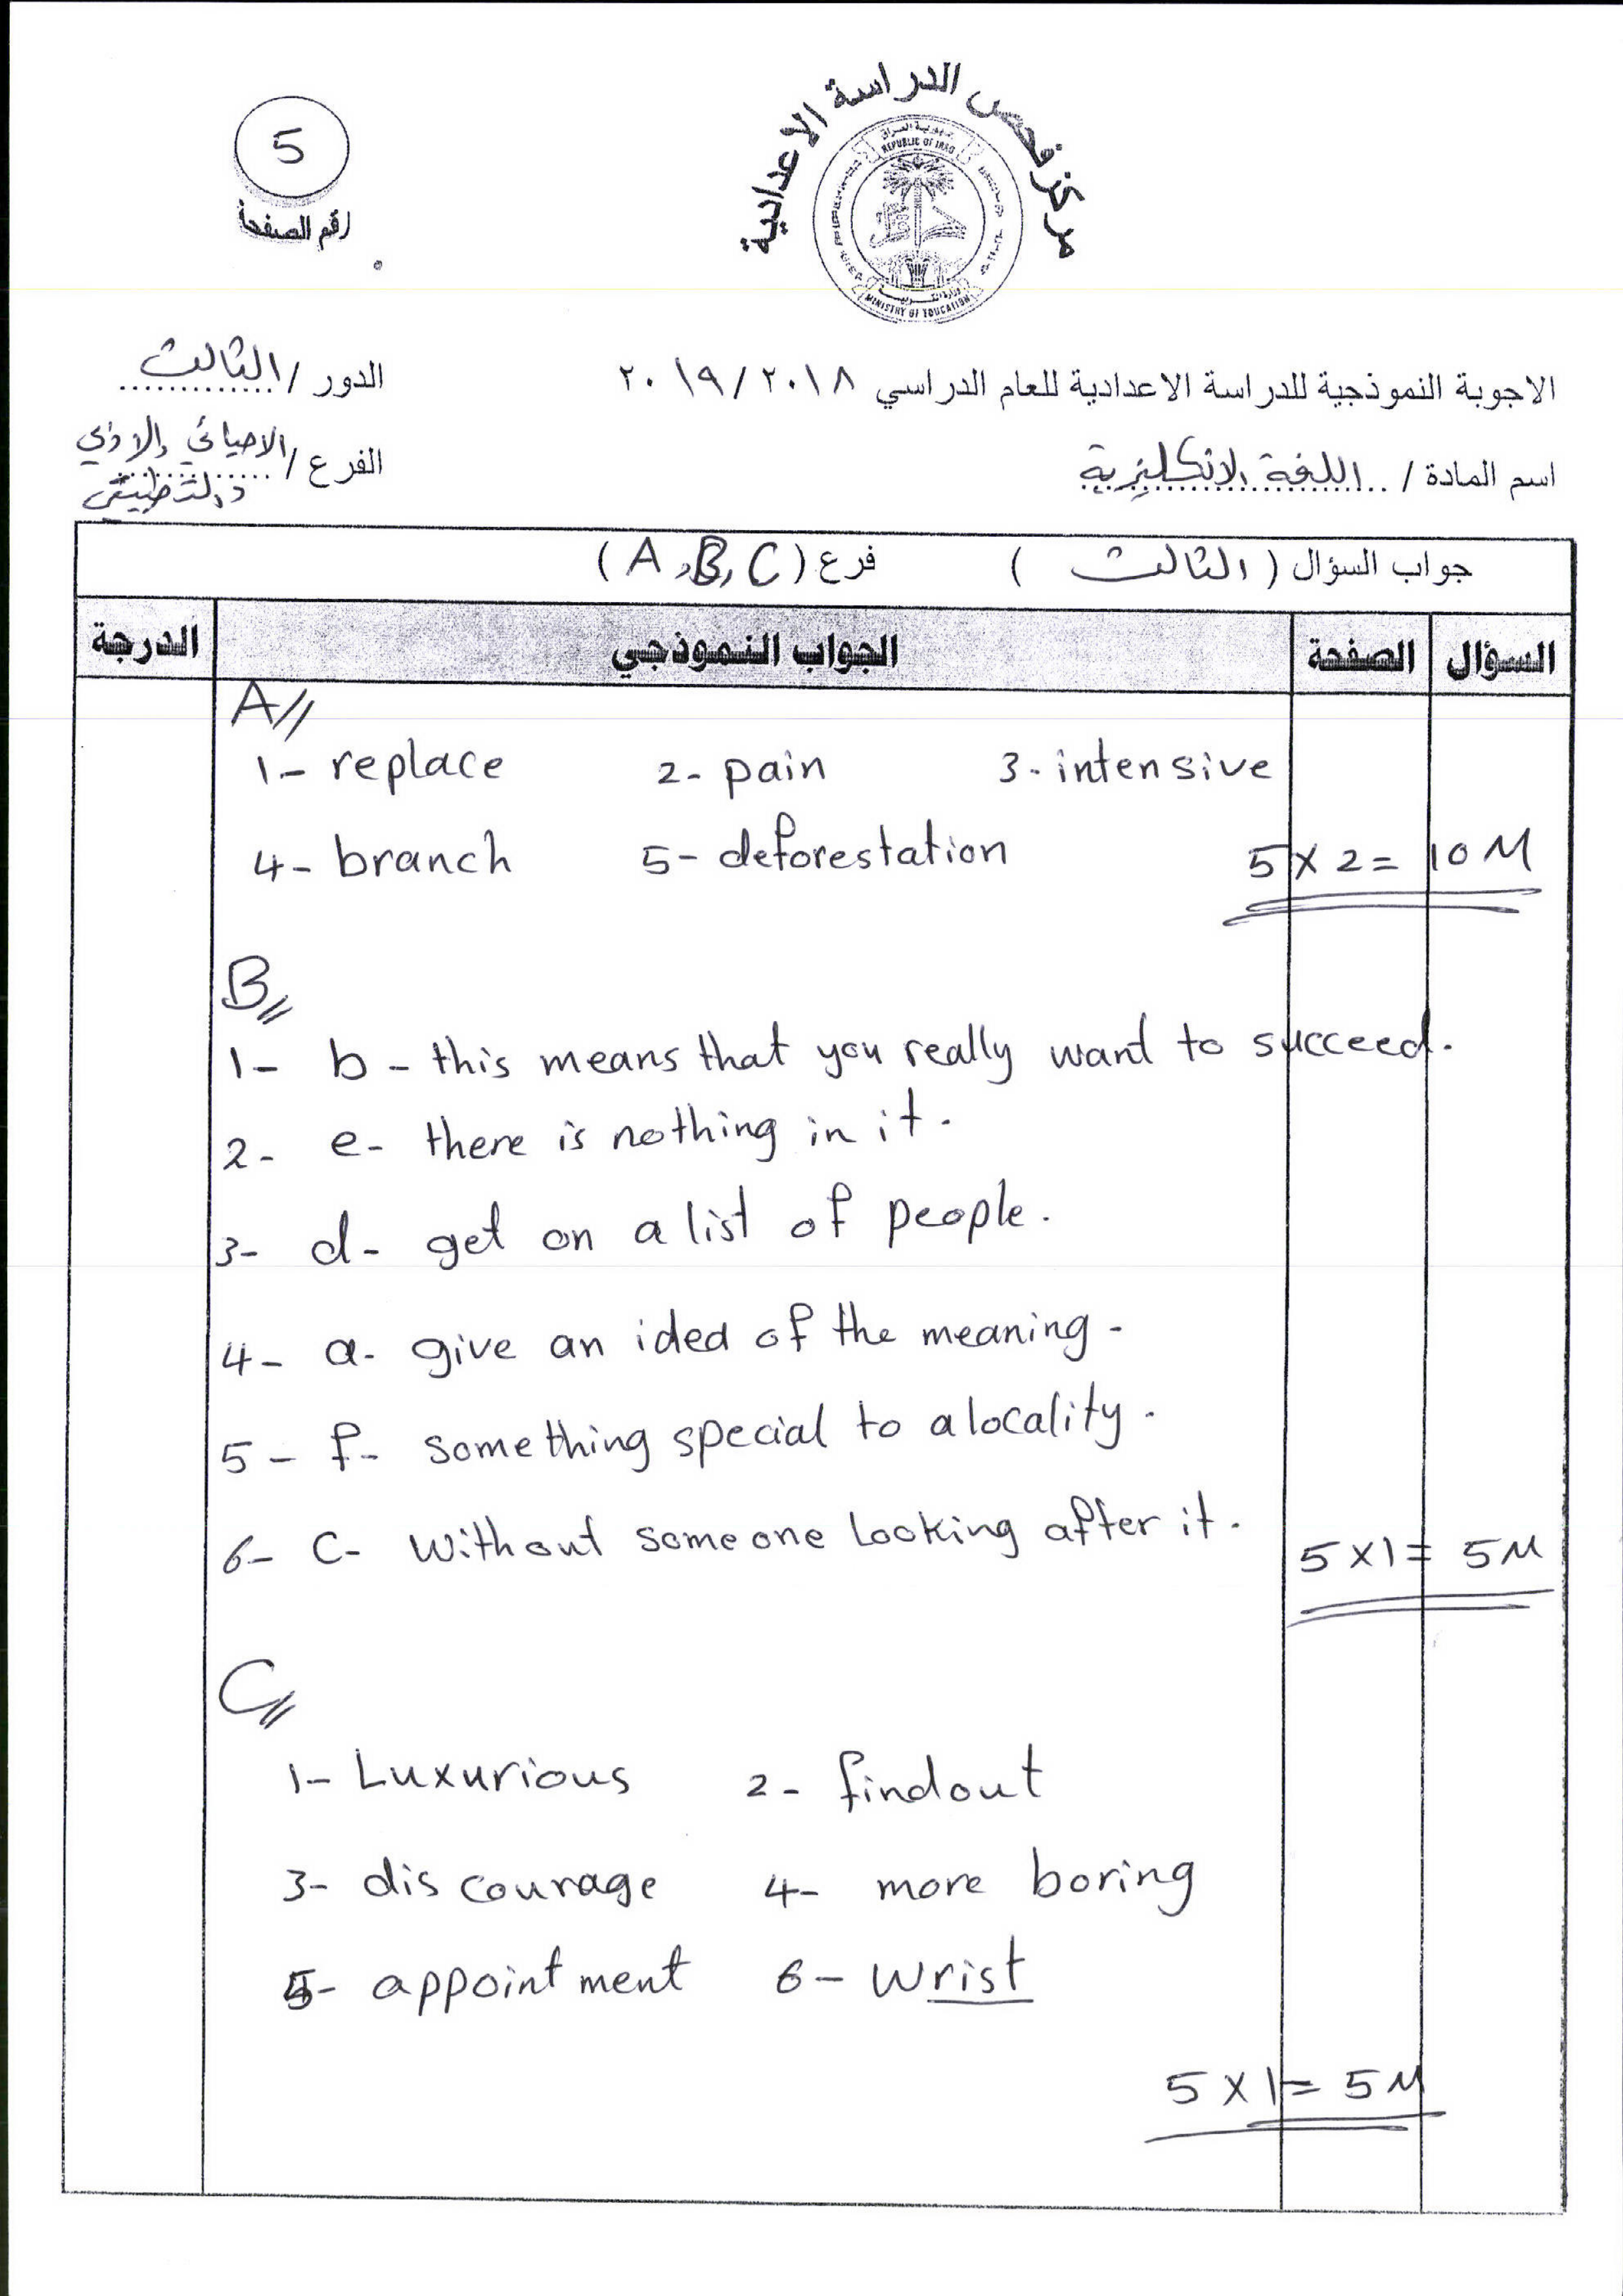 مركز فحص الدراسة الاعدادية
جمهورية العراق
REPUBLIC OF IRAQ
MINISTRY OF EDUCATION
5
رقم الصفحة
الاجوبة النموذجية للدراسة الاعدادية للعام الدراسي ٢٠١٨ / ٢٠١٩
الدور / الثالث
اسم المادة / اللغة الانكليزية
الفرع / الاحيائي والادبي
والتطبيقي
جواب السؤال ( الثالث ) فرع ( A, B, C )
السؤال الصفحة الجواب النموذجي الدرجة
A//
1- replace 2- pain 3- intensive
4- branch 5- deforestation 5 x 2 = 10 M
B//
1- b - this means that you really want to succeed.
2- e- there is nothing in it.
3- d- get on a list of people.
4- a- give an idea of the meaning.
5- f- something special to a locality.
6- c- without someone looking after it.
5 x 1 = 5 M
C//
1- Luxurious 2- findout
3- discourage 4- more boring
5- appointment 6- wrist
5 x 1 = 5 M